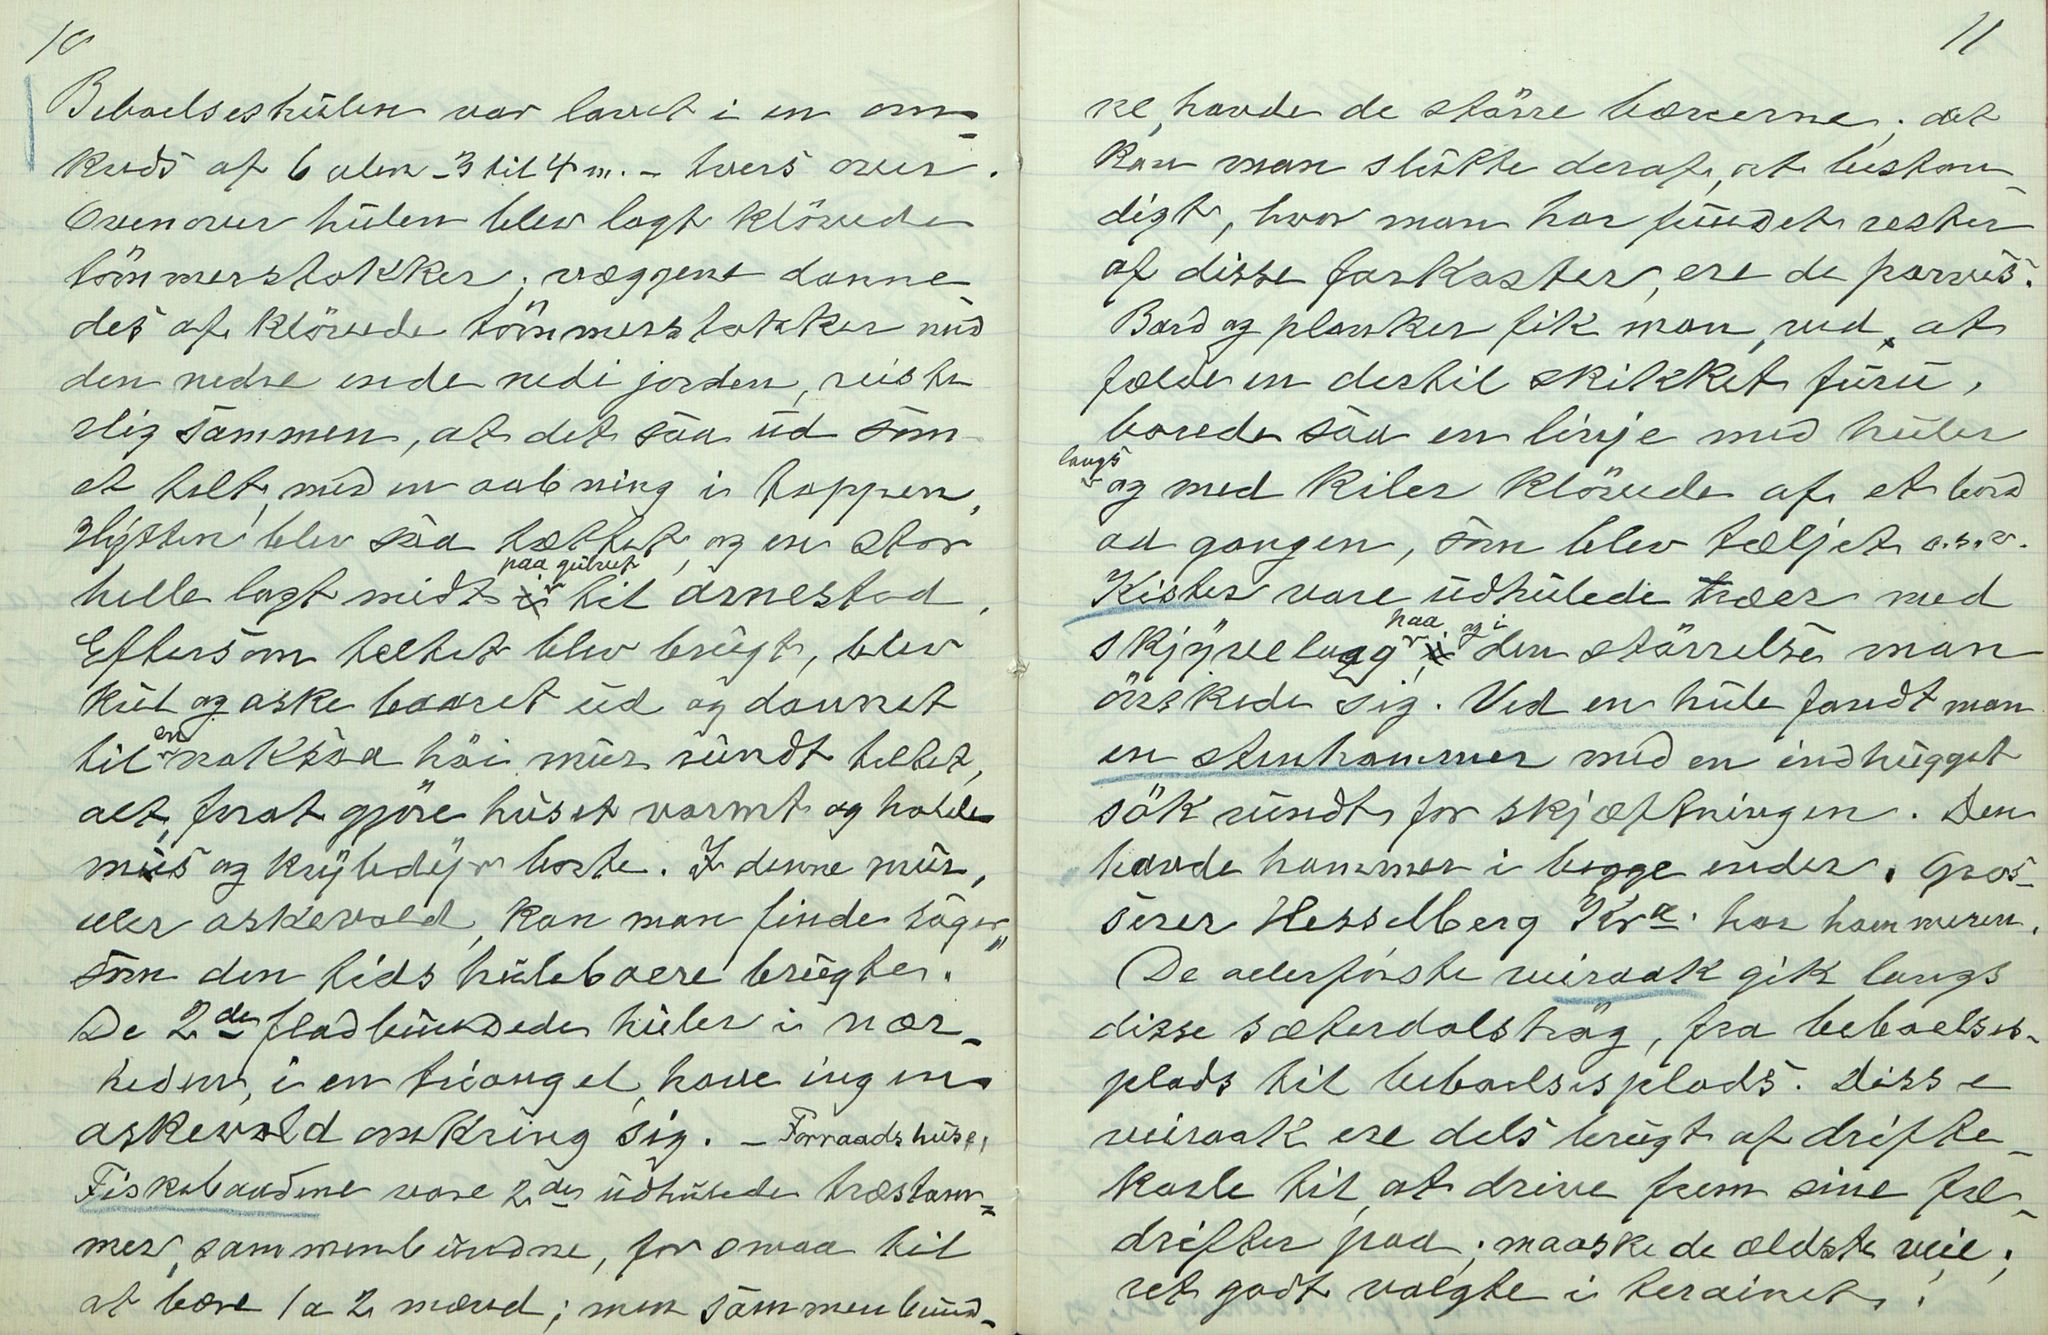 10
Beboelseshulen var lavet i en om-
kreds af 6 alen - 3 til 4 m. - tvers over.
Ovenover hulen blev lagt klövede
tömmerstokker; væggene danne
des af klövede tömmerstokker med
den nedre ende nedi jorden, reiste
slig sammen, at det saa ud som
et telt, med en aabning i toppen,
Hytten blev saa tættet, og en stor
helle lagt midt paa gulvet til arnestad.
Eftersom teltet blev brugt, blev
kul og aske baaret ud og dannet
til en noksaa höi mur rundt teltet,
alt, forat gjöre huset varmt og holde
mus og krybedyr borte. I denne mur,
eller askevold, kan man finde sager,
som den tids huleboere brugte.
De 2de fladbundede huler i nær-
heden, i en triangel, have ingen
askevold omkring sig. - Forraadshuse,
Fiskebaadene vare 2de udhulede træstam-
mer, sammenbundne, for smaa til
at bære 1 a 2 mænd; men sammenbund-
11
ne, havde de större bæreevne; det
kan man slutte deraf, at bestan-
digt, hvor man har fundet rester
af disse farkoster, ere de parvis.
Bord og planker fik man, ved, at
fælde en dertil skikket furu,
borede saa en linje med huler
langs og med kiler klövede af et bord
ad gangen, som blev tæljet o.s.v.
Kister vare udhulede træer med
skjyvelaag paa og i den störrelse man
önskede sig. Ved en hule fandt man
en stenhammer med en indhugget
sök rundt for skjæftningen. Den
havde hammer i begge ender. Gros-
serer Hesselberg Kra. har hammeren.
De allerförste veiraak gik langs
disse sæterdalströg, fra beboelses-
plads til beboelsesplads. Disse
veiraak ere dels brugt af drifte-
karle til, at drive frem sine fæ-
drifter paa; maaske de ældste veie;
ret godt valgte i terainet!